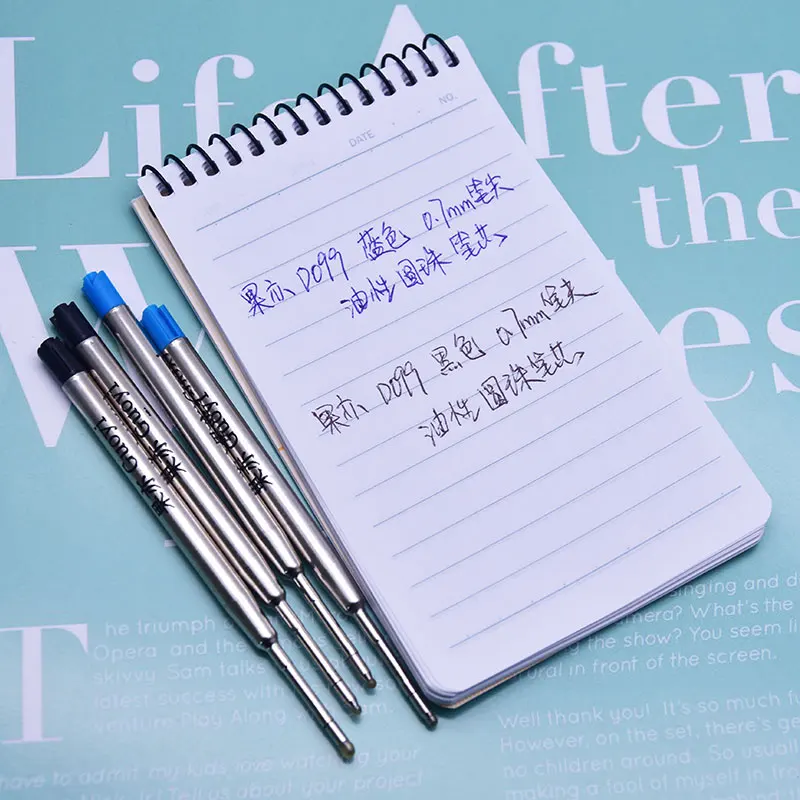 Life After
the
DATE
NO.
果亦D099 蓝色 0.7mm笔尖
油性圆珠笔芯
果亦D099 黑色 0.7mm笔尖
油性圆珠笔芯
果亦 Guoyi
果亦 Guoyi
果亦 Guoyi
he triumph
Opera and the
skivvy. Sam talks
latest success with
venture Play Along
have to admit my kids love watching your
Tell us about your project
singing and
camera? What's the
the show? You seem
natural in front of the screen.
Well thank you! It's so much
However, on the set, there's
no children around. So
making a fool of myself in